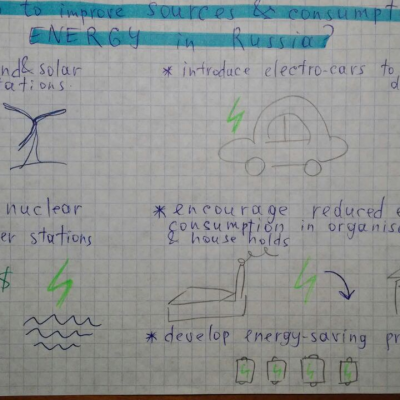 to improve sources & consumpt
ENERGY in Russia?
nd & solar
tations.
* introduce electro-cars to
d
nuclear
er stations
* encourage reduced e
consumption in organis
& house holds
$
* develop energy-saving pr